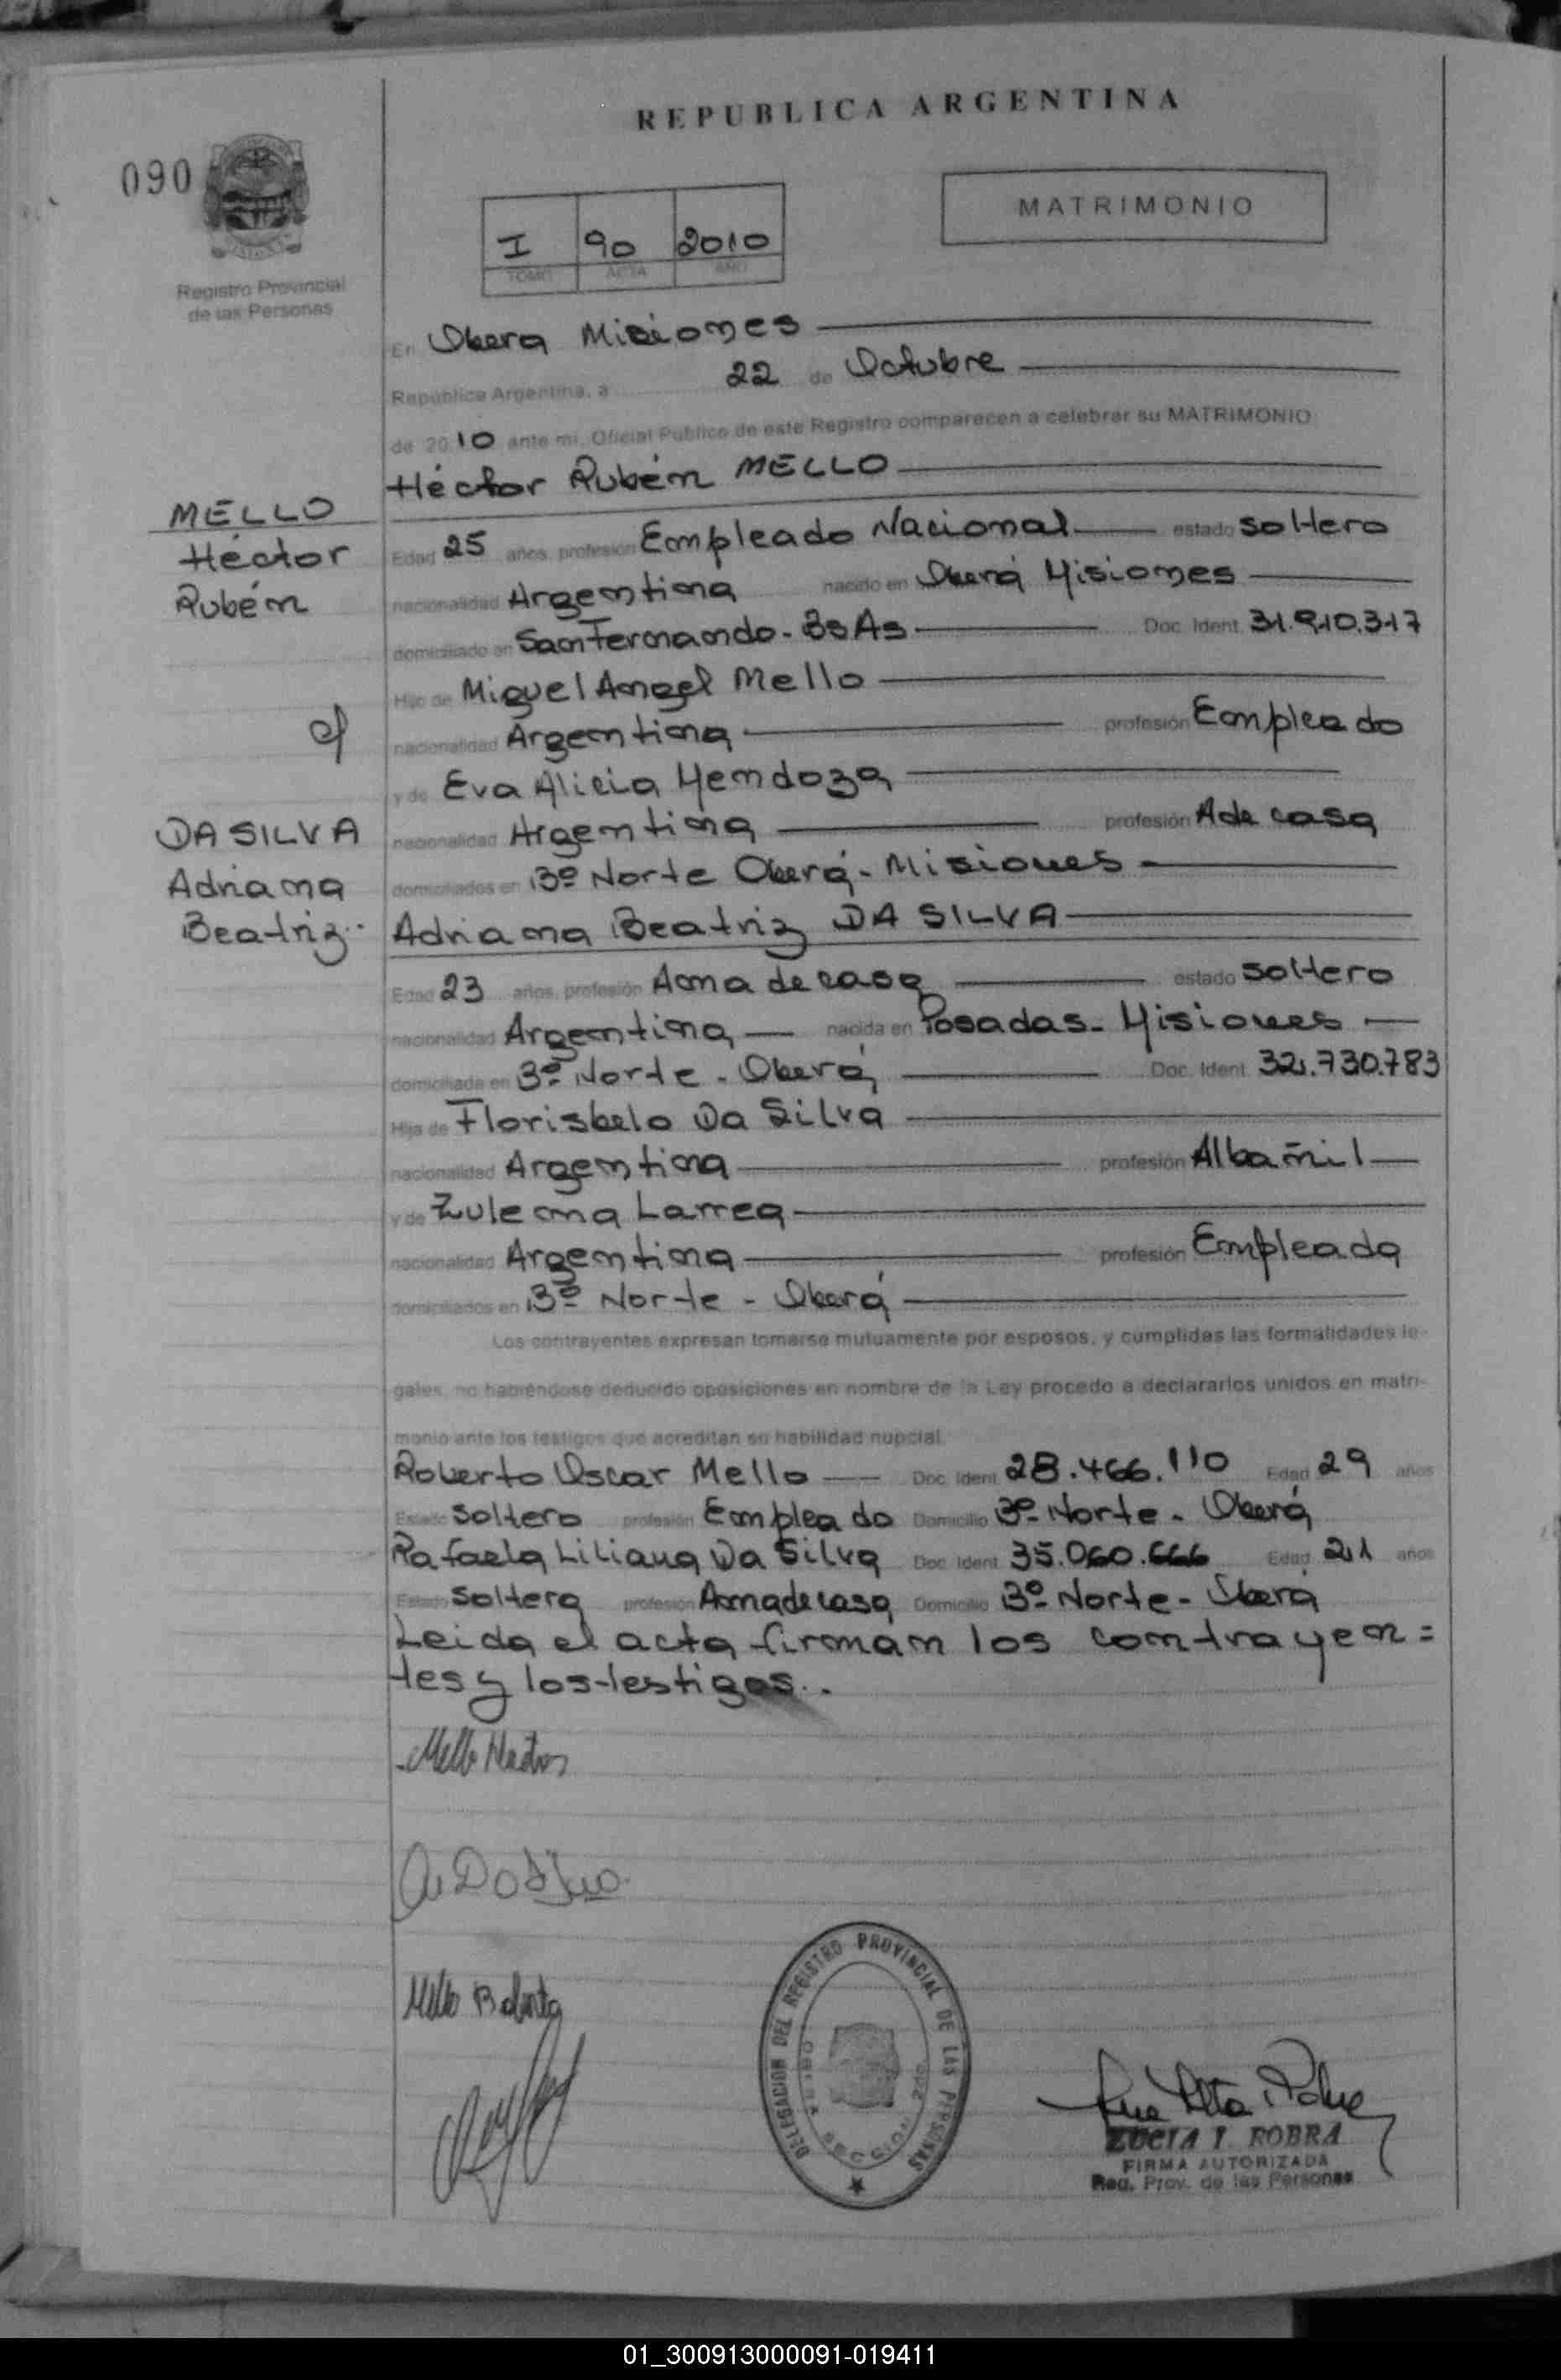 REPUBLICA ARGENTINA
090
MATRIMONIO
I 90 2010
TOMO ACTA AÑO
Registro Provincial
de las Personas
En Oberá Misiones
República Argentina, a 22 de Octubre
de 2010 ante mi, Oficial Público de este Registro comparecen a celebrar su MATRIMONIO
Héctor Rubén MELLO
MELLO
Héctor
Rubén
Edad 25 años, profesión Empleado Nacional estado soltero
nacionalidad Argentina nacido en Oberá Misiones
domiciliado en San Fernando - Bs As Doc. Ident. 31.910.317
Hijo de Miguel Angel Mello
c/
nacionalidad Argentina profesión Empleado
y de Eva Alicia Mendoza
DA SILVA
Adriana
Beatriz
nacionalidad Argentina profesión A de casa
domiciliados en Bº Norte Oberá - Misiones
Adriana Beatriz DA SILVA
Edad 23 años, profesión Ama de casa estado soltero
nacionalidad Argentina nacida en Posadas - Misiones
domiciliada en Bº Norte - Oberá Doc. Ident. 32.730.783
Hija de Florisbelo Da Silva
nacionalidad Argentina profesión Albañil
y de Zulema Larrea
nacionalidad Argentina profesión Empleada
domiciliados en Bº Norte - Oberá
Los contrayentes expresan tomarse mutuamente por esposos, y cumplidas las formalidades le-
gales, no habiéndose deducido oposiciones en nombre de la Ley procedo a declararlos unidos en matri-
monio ante los testigos que acreditan su habilidad nupcial.
Roberto Oscar Mello Doc. Ident. 28.466.110 Edad 29 años
Estado Soltero profesión Empleado Domicilio Bº Norte - Oberá
Rafaela Liliana Da Silva Doc. Ident. 35.060.666 Edad 21 años
Estado Soltera profesión Ama de casa Domicilio Bº Norte - Oberá
Leida el acta firman los contrayen=
tes y los testigos.
Mello Hector
A. Da Silva
Mello Roberto
DELEGACION DEL REGISTRO PROVINCIAL DE LAS PERSONAS
SECCION 2da
LUCIA I. ROBRA
FIRMA AUTORIZADA
Reg. Prov. de las Personas
01_300913000091-019411